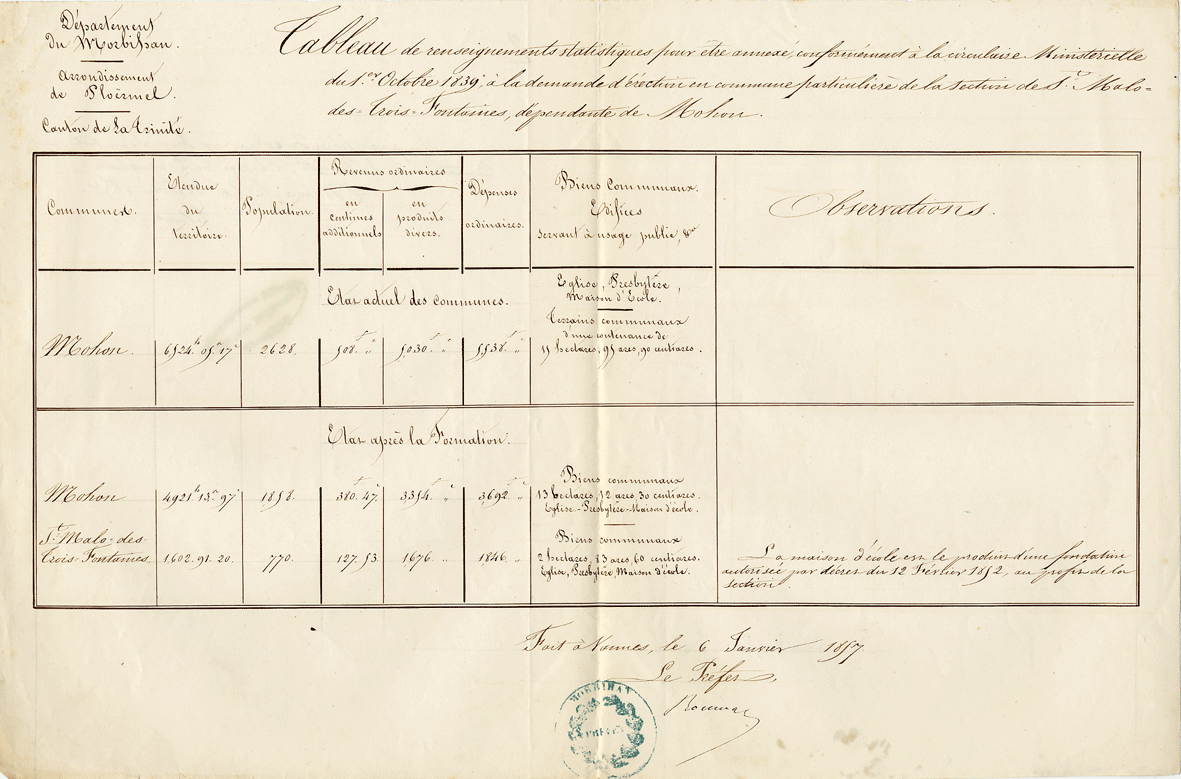 Département
du Morbihan.
Arrondissement
de Ploërmel.
Canton de La Trinité.
Tableau de renseignements statistiques pour être annexé, conformément à la circulaire Ministérielle
du 1.er Octobre 1839, à la demande d'érection en commune particulière de la section de St. Malo-
des-Trois-Fontaines, dépendante de Mohon.
Communes.
Etendue
du
territoire.
Population.
Revenus ordinaires
en
centimes
additionnels
en
produits
divers.
Dépenses
ordinaires.
Biens Communaux.
Edifices
servant à usage public, &a
Observations.
Etat actuel des communes.
Eglise, Presbytère,
Maison d'Ecole.
Terrains communaux
d'une contenance de
15 hectares, 95 ares, 90 centiares.
Mohon. 6524.h 05.a 17.c 2628. 508.f " 5030.f " 5538.f "
Etat après la Formation.
Biens communaux
13 hectares, 12 ares, 30 centiares.
Eglise-Presbytère-Maison d'école.
Mohon 4921h 13a 97c 1858. 380.f 47.c 3354.f "c 3,692.f "c
St. Malo-des-
Trois-Fontaines 1602.91.20. 770. 127.53 1676 .. 1846. ..
Biens communaux
2 hectares, 83 ares, 60 centiares.
Eglise, Presbytère, Maison d'école.
La maison d'école est le produit d'une fondation
autorisée par décret du 12 Février 1852, au profit de la
section.
Fait à Vannes, le 6 Janvier 1857
Le Préfet,
MORBIHAN